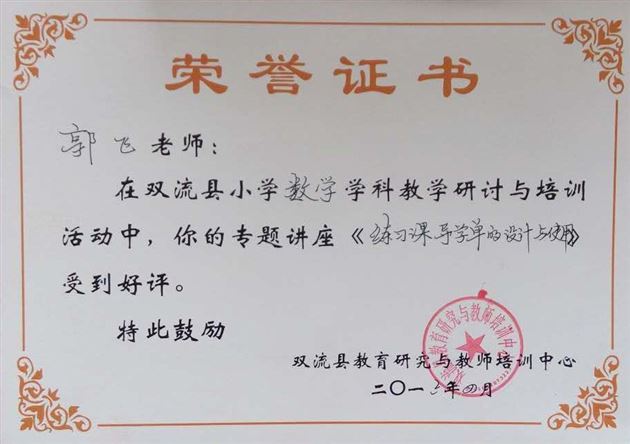 荣誉证书
郭飞老师：
在双流县小学数学学科教学研讨与培训
活动中，你的专题讲座《练习课导学单的设计与使用》
受到好评。
特此鼓励
双流县教育研究与教师培训中心
二〇一六年四月
双流县教育研究与教师培训中心